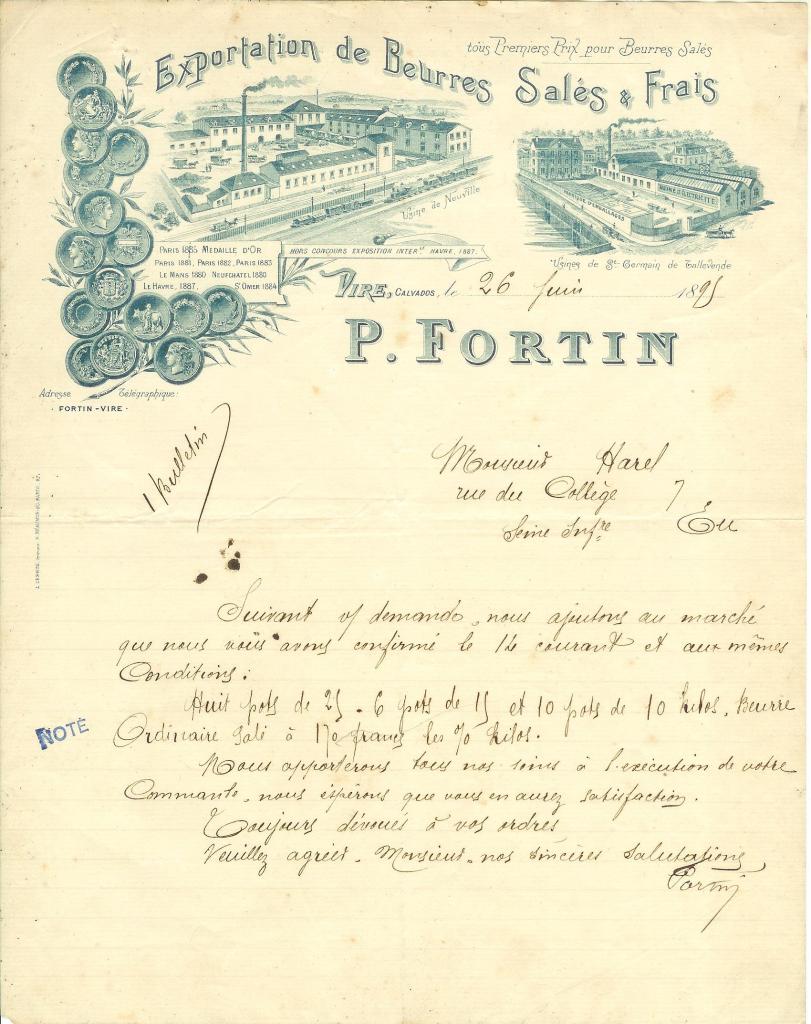 tous Premiers Prix pour Beurres Salés
Exportation de Beurres Salés & Frais
Usine de Neuville
USINE D'ELECTRICITÉ
Usines de St Germain de Tallevende
PARIS 1885 MEDAILLE D'OR
PARIS 1881, PARIS 1882, PARIS 1883
LE MANS 1880 NEUFCHATEL 1880
LE HAVRE, 1887, ST OMER 1884
HORS CONCOURS EXPOSITION INTERle HAVRE, 1887.
VIRE, CALVADOS, le 26 Juin 1895
P. FORTIN
Adresse Télégraphique:
· FORTIN-VIRE ·
1 Bulletin
Monsieur Harel
rue du Collège 7
Seine Infre Eu
Suivant v/ demande, nous ajoutons au marché
que nous vous avons confirmé le 14 courant et aux mêmes
Conditions :
Huit pots de 25. 6 pots de 15 et 10 pots de 10 kilos. Beurre
Ordinaire salé à 170 francs les % kilos.
NOTÉ
Nous apporterons tous nos soins à l'exécution de votre
Commande, nous éspérons que vous en aurez satisfaction.
Toujours dévoués à vos ordres
Veuillez agréer. Monsieur. nos sincères salutations
Fortin